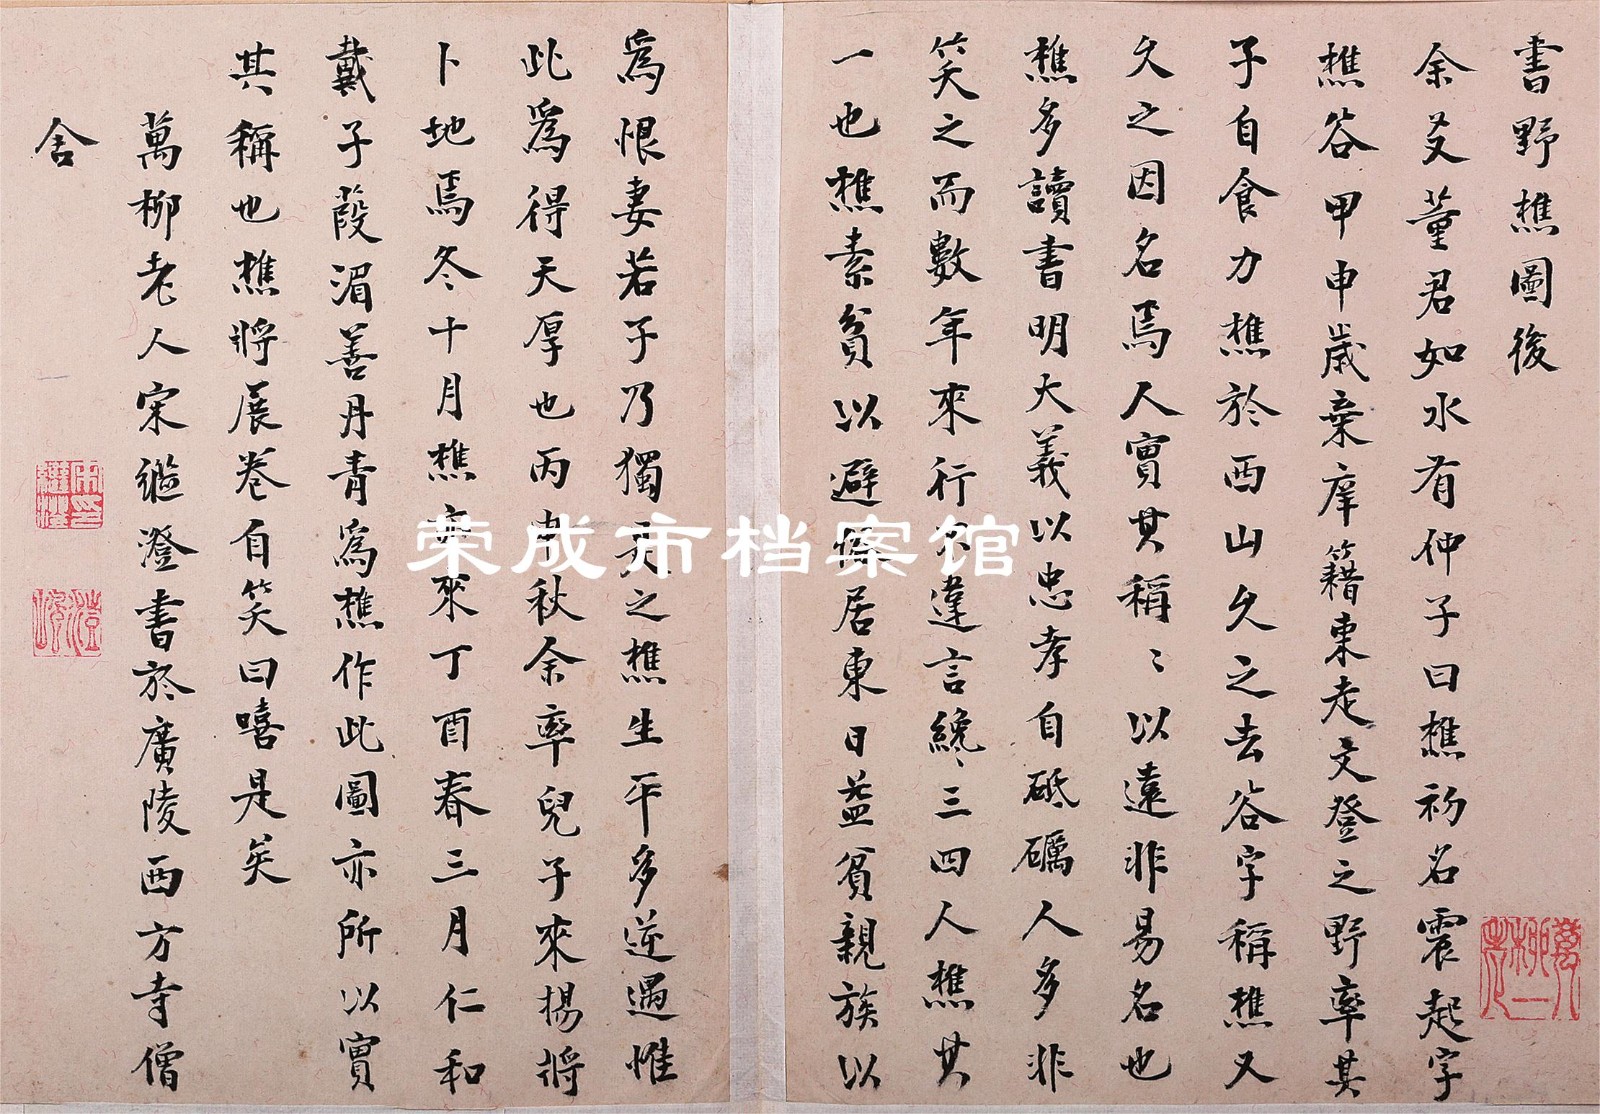 書野樵圖後
余友董君如水有仲子曰樵初名震起字
樵谷甲申歲棄庠籍東走文登之野率其
子自食力樵於西山久之去谷字稱樵又
久之因名焉人實其稱〻以遠非易名也
樵多讀書明大義以忠孝自砥礪人多非
笑之而數年來行不違言纔三四人樵其
一也樵素貧以避 居東日益貧親族以
為恨妻若子乃獨 之樵生平多逆遇惟
此為得天厚也丙申秋余率兒子來揚將
卜地焉冬十月樵亦來丁酉春三月仁和
戴子葭湄善丹青為樵作此圖亦所以實
其稱也樵將展卷自笑曰嘻是矣
萬柳老人宋繼澄書於廣陵西方寺僧
舍
荣成市档案馆